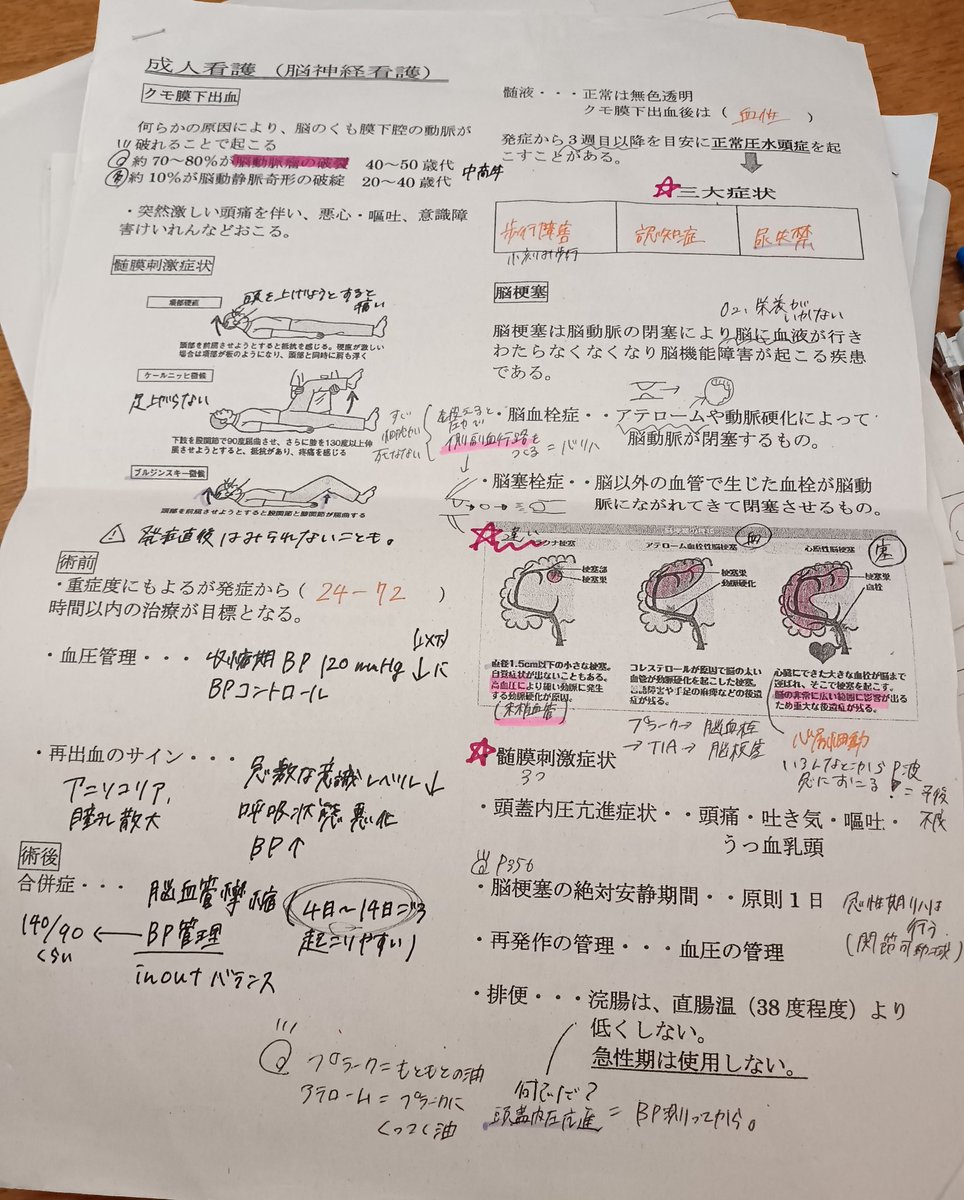 成人看護（脳神経看護）
クモ膜下出血
何らかの原因により、脳のくも膜下腔の動脈が
破れることで起こる
約70～80%が脳動脈瘤の破裂 40～50歳代
約10%が脳動静脈奇形の破綻 20～40歳代
・突然激しい頭痛を伴い、悪心・嘔吐、意識障
害けいれんなどおこる。
髄膜刺激症状
項部硬直
頭を上げようとすると
痛い
頭部を前屈させようとすると抵抗を感じる。硬直が激しい
場合は項部が板のようになり、頭部と同時に肩も浮く
ケールニッヒ徴候
足上がらない
下肢を股関節で90度屈曲させ、さらに膝を130度以上伸
展させようとすると、抵抗があり、疼痛を感じる
ブルジンスキー徴候
頭部を前屈させようとすると股関節と膝関節が屈曲する
発症直後はみられないことも。
術前
・重症度にもよるが発症から（ 24－72 ）
時間以内の治療が目標となる。
・血圧管理・・・収縮期BP 120 mmHg ↓に
(以下)
BPコントロール
・再出血のサイン・・・
アニソコリア、
瞳孔散大
急激な意識レベル↓
呼吸状態悪化
BP↑
術後
合併症・・・脳血管攣縮
(4日～14日ごろ
起こりやすい)
140/90 ← BP管理
くらい
inoutバランス
プラーク＝もともとの油
アテローム＝プラークに
くっつく油
髄液・・・正常は無色透明
クモ膜下出血後は（ 血性 ）
発症から3週目以降を目安に正常圧水頭症を起
こすことがある。
三大症状
歩行障害 認知症 尿失禁
小刻み歩行
脳梗塞
O2、栄養が
いかない
脳梗塞は脳動脈の閉塞により脳に血液が行き
わたらなくなくなり脳機能障害が起こる疾患
である。
・脳血栓症・・アテロームや動脈硬化によって
脳動脈が閉塞するもの。
すぐ
細胞が
死なない
側副血行路を
つくる＝リハ
・脳塞栓症・・脳以外の血管で生じた血栓が脳動
脈にながれてきて閉塞させるもの。
違い
ラクナ梗塞
梗塞部
梗塞巣
直径1.5cm以下の小さな梗塞。
自覚症状が出ないこともある。
高血圧により細い動脈に発生
する動脈硬化が原因。
(末梢血管)
アテローム血栓性脳梗塞
血
梗塞巣
動脈硬化
コレステロールが原因で脳の太い
血管が動脈硬化を起こした梗塞。
言語障害や手足の麻痺などの後遺
症が残る。
心原性脳梗塞
塞
梗塞巣
血栓
心臓にできた大きな血栓が脳まで
運ばれ、そこで梗塞を起こす。
脳の非常に広い範囲に影響が出る
ため重大な後遺症が残る。
プラーク→脳血栓
→TIA→脳梗塞
心房細動
いろんなとこから
急におこる
P波
＝平役
不良
髄膜刺激症状
3つ
・頭蓋内圧亢進症状・・頭痛・吐き気・嘔吐・
うっ血乳頭
P356
・脳梗塞の絶対安静期間・・原則1日
急性期リハは
行う
(関節可動域)
・再発作の管理・・・血圧の管理
・排便・・・浣腸は、直腸温（38度程度）より
低くしない。
急性期は使用しない。
何でいで？
頭蓋内圧亢進＝BP測ってから。